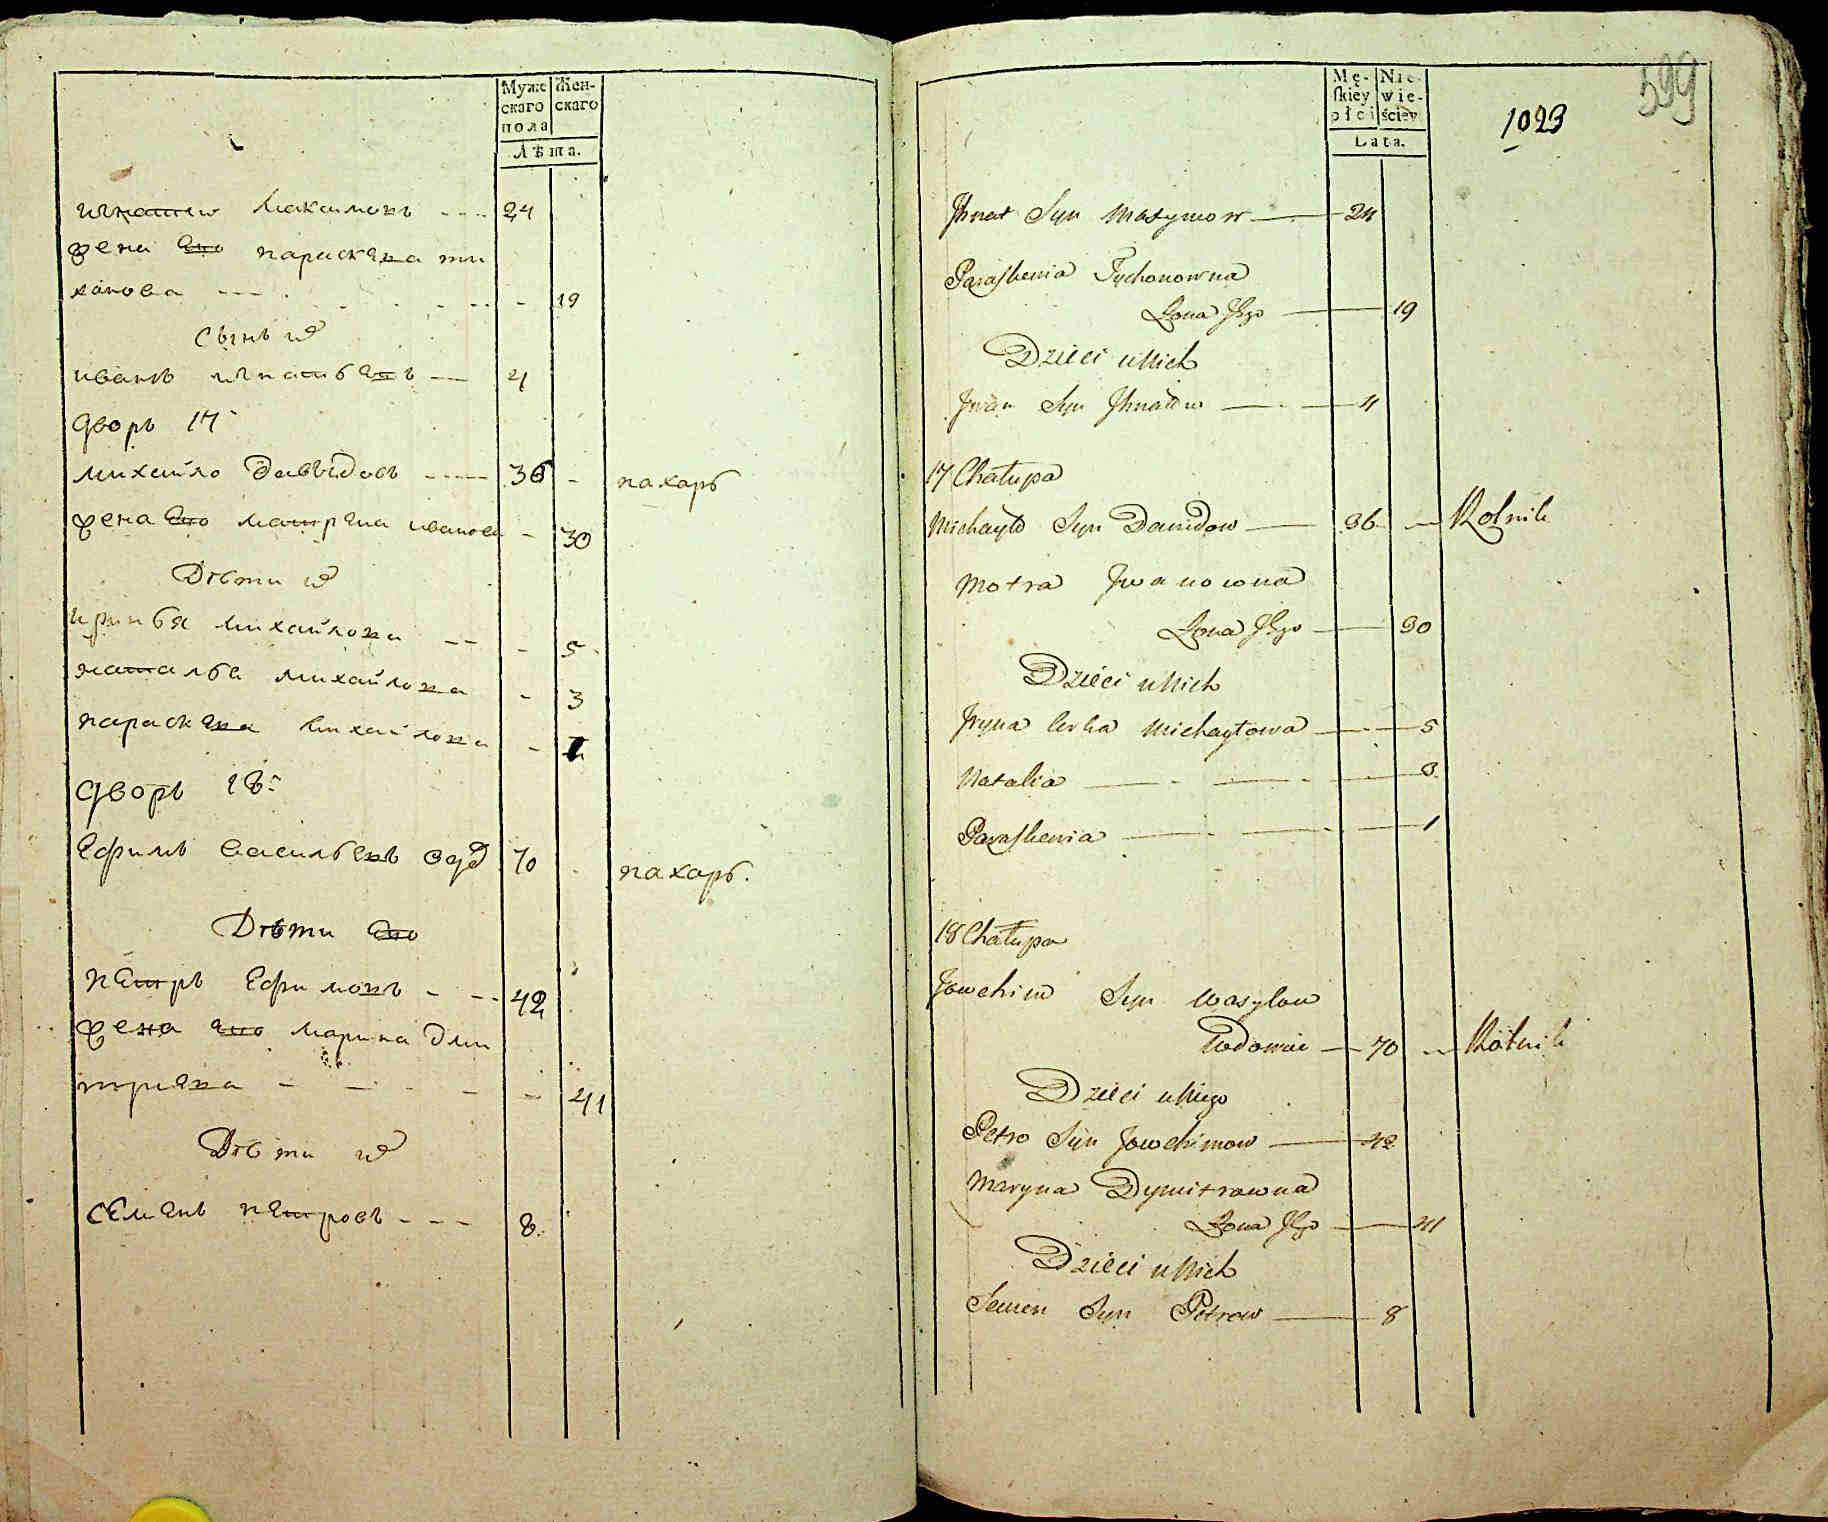 Муже
скаго
пола
Жен-
скаго
Лѣта.
игнатъ Максимовъ - - - - 24
жена его параскева ти
хонова - - - - - 19
сынъ их
иванъ игнатьевъ — 4
дворъ 17
михайло давыдовъ - - - - 36 - пахарь
жена его матрена иванова - 30
Дѣти их
иринья михайлова - - - 5
наталья михайлова - 3
параскева михайлова - 1
дворъ 18
Ефимъ васильевъ вд 70 - пахарь.
Дѣти его
петръ Ефимовъ - - - 42
жена его марина дми
триева - - - - - 41
Дѣти их
семенъ петровъ - - - 8
Mę-
skiey
płci
Nie-
wie-
ściey
Lata.
1023
599
Jhnat Syn Maxymow — 24
Paraskewia Tychonowna
Żona Jego — 19
Dzieci u Nich
Jwan Syn Jhnatow — 4
17 Chałupa
Michayło Syn Dawidow — 36 — Rolnik
Motra Jwanowna
Żona Jego — 30
Dzieci u Nich
Jryna Corka Michayłowa — 5
Natalia — 3
Paraskewia — 1
18 Chałupa
Jowchim Syn Wasylow
Wdowiec — 70 — Rolnik
Dzieci u Niego
Petro Syn Jowchimow — 42
Maryna Dymitrowna
Żona Jego — 41
Dzieci u Nich
Semen Syn Petrow — 8